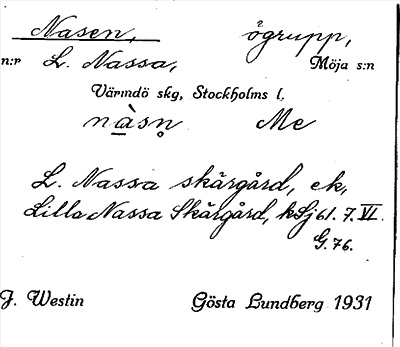 Nasen, ögrupp,
n:r L. Nassa, Möja s:n
Värmdö skg, Stockholms l.
nàsṇ Me
L. Nassa skärgård, ek,
Lilla Nassa Skärgård, kSj 61. 7. VI.
G. 76.
J. Westin Gösta Lundberg 1931